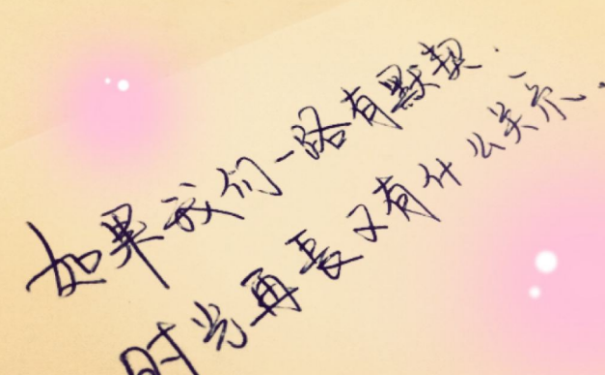 如果我们一路有默契.
时光再长又有什么关系、